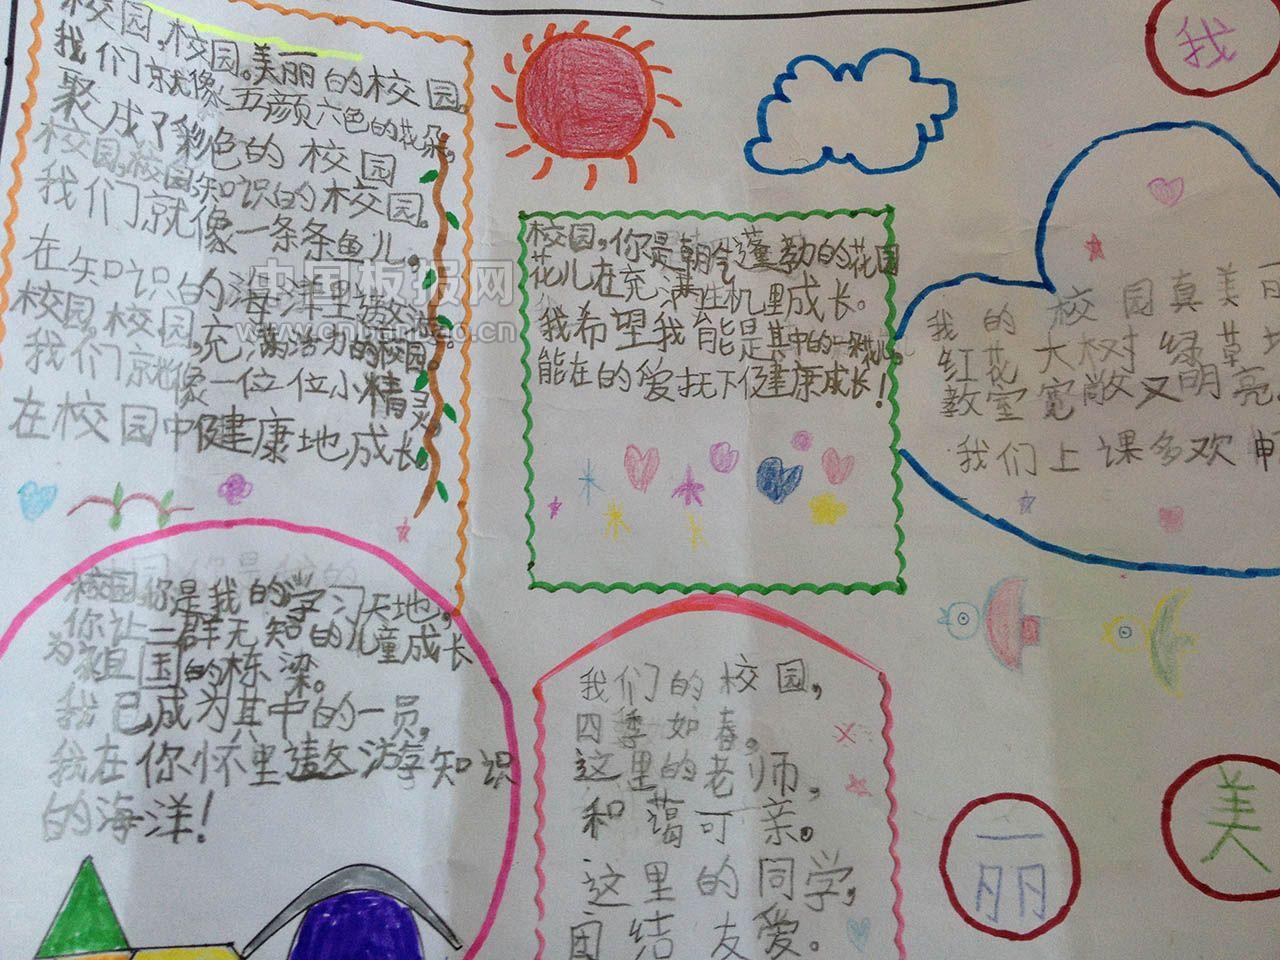 校园,校园。美丽的校园。
我们就像五颜六色的花朵,
聚成了彩色的校园
校园,校园,知识的校园。
我们就像一条条鱼儿。
在知识的海洋里遨游
校园,校园,充满活力的校园。
我们就像一位位小精灵。
在校园中健康地成长。
校园,你是朝气蓬勃的花园
花儿在充满生机里成长。
我希望我能是其中的一朵花儿。
能在的爱抚下健康成长!
我
我的校园真美
红花大树绿草
教室宽敞又明亮
我们上课多欢
校园,你是我的学习天地,
你让一群无知的儿童成长
为祖国的栋梁。
我已成为其中的一员,
我在你怀里遨游知识
的海洋!
我们的校园,
四季如春。
这里的老师,
和蔼可亲。
这里的同学,
团结友爱。
丽
美
中国板报网
www.cnbanbao.cn